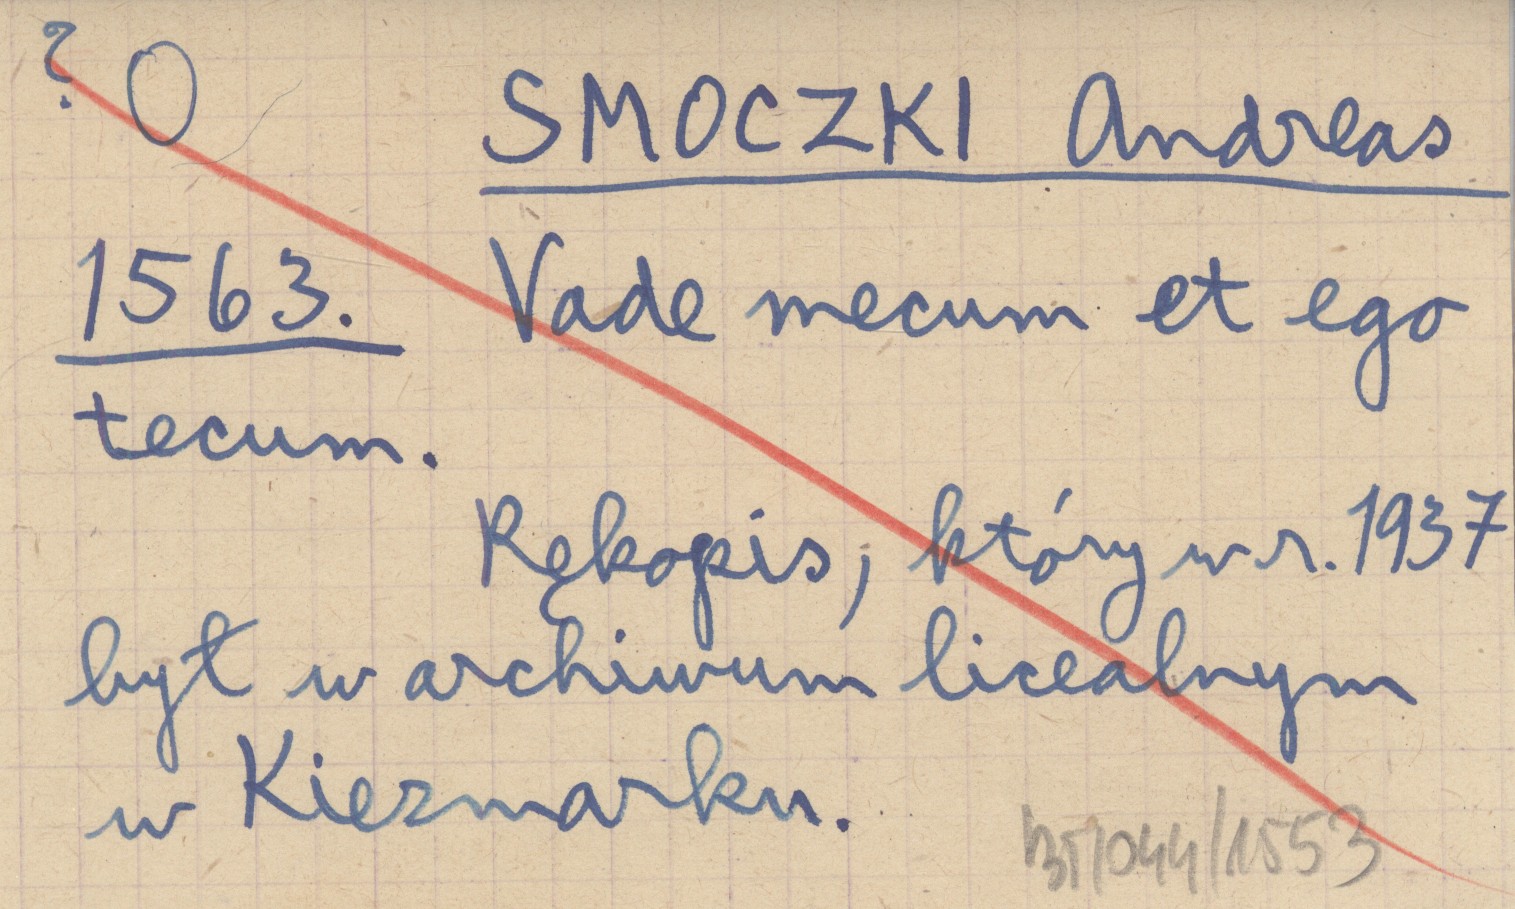 ? O
SMOCZKI Andreas
1563. Vade mecum et ego
tecum.
Rękopis, który w r. 1937
był w archiwum licealnym
w Kiezmarku.
BT/044/1553